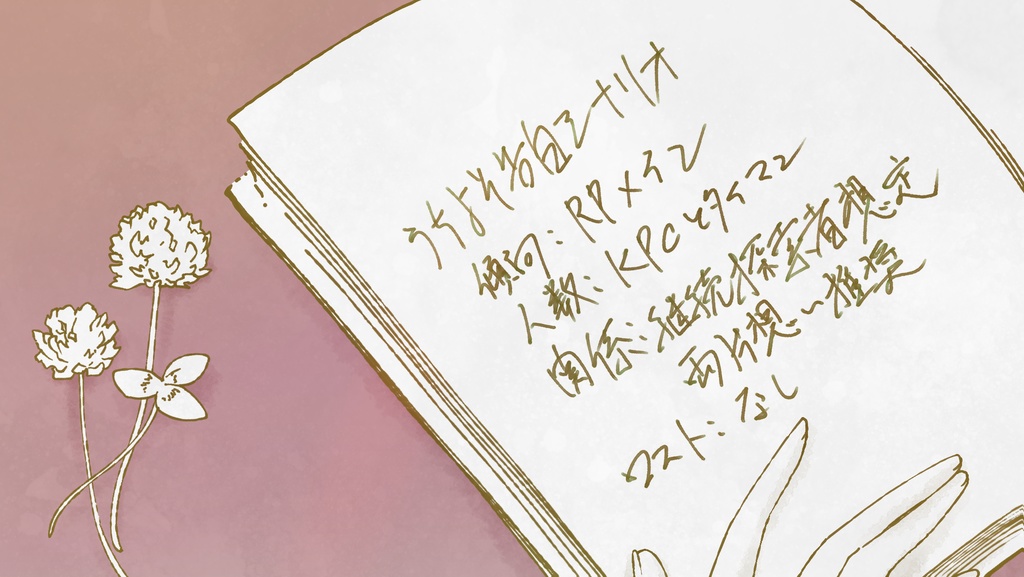 うちよそ告白シナリオ
傾向：RPメイン
人数：KPCとタイマン
関係：継続探索者想定
両片想い推奨
ロスト：なし